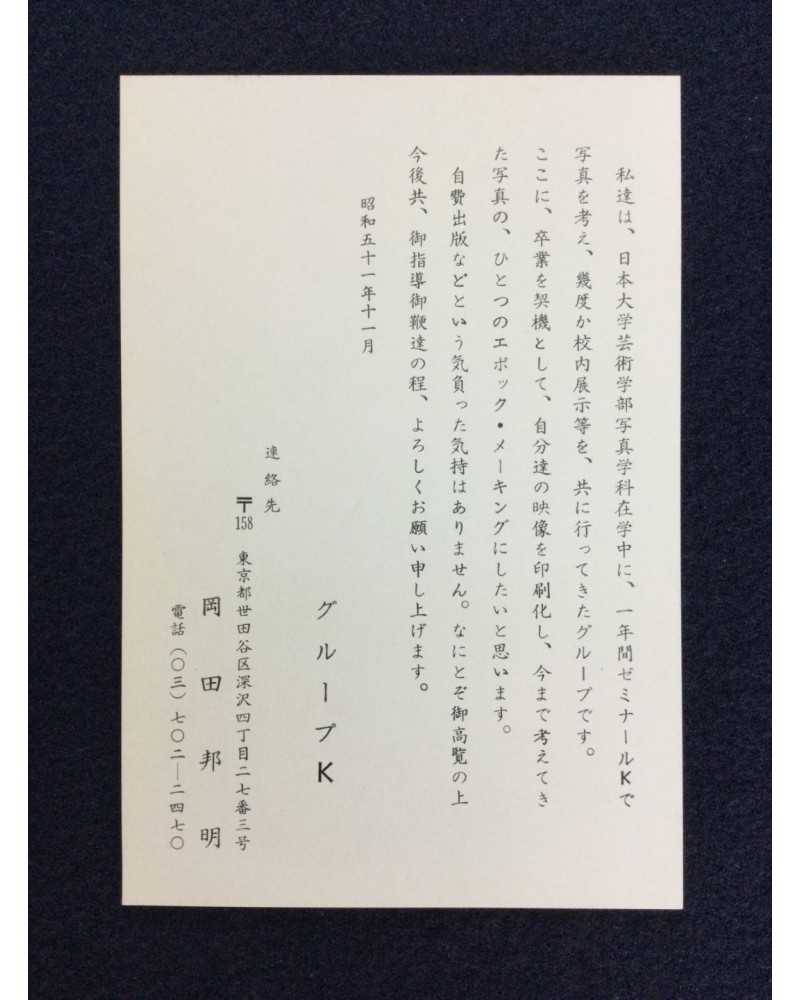 私達は、日本大学芸術学部写真学科在学中に、一年間ゼミナールKで
写真を考え、幾度か校内展示等を、共に行ってきたグループです。
ここに、卒業を契機として、自分達の映像を印刷化し、今まで考えてき
た写真の、ひとつのエポック・メーキングにしたいと思います。
自費出版などという気負った気持はありません。なにとぞ御高覧の上
今後共、御指導御鞭達の程、よろしくお願い申し上げます。
昭和五十一年十一月
グループK
連絡先
〒158 東京都世田谷区深沢四丁目二七番三号
岡田邦明
電話(〇三)七〇二―二四七〇